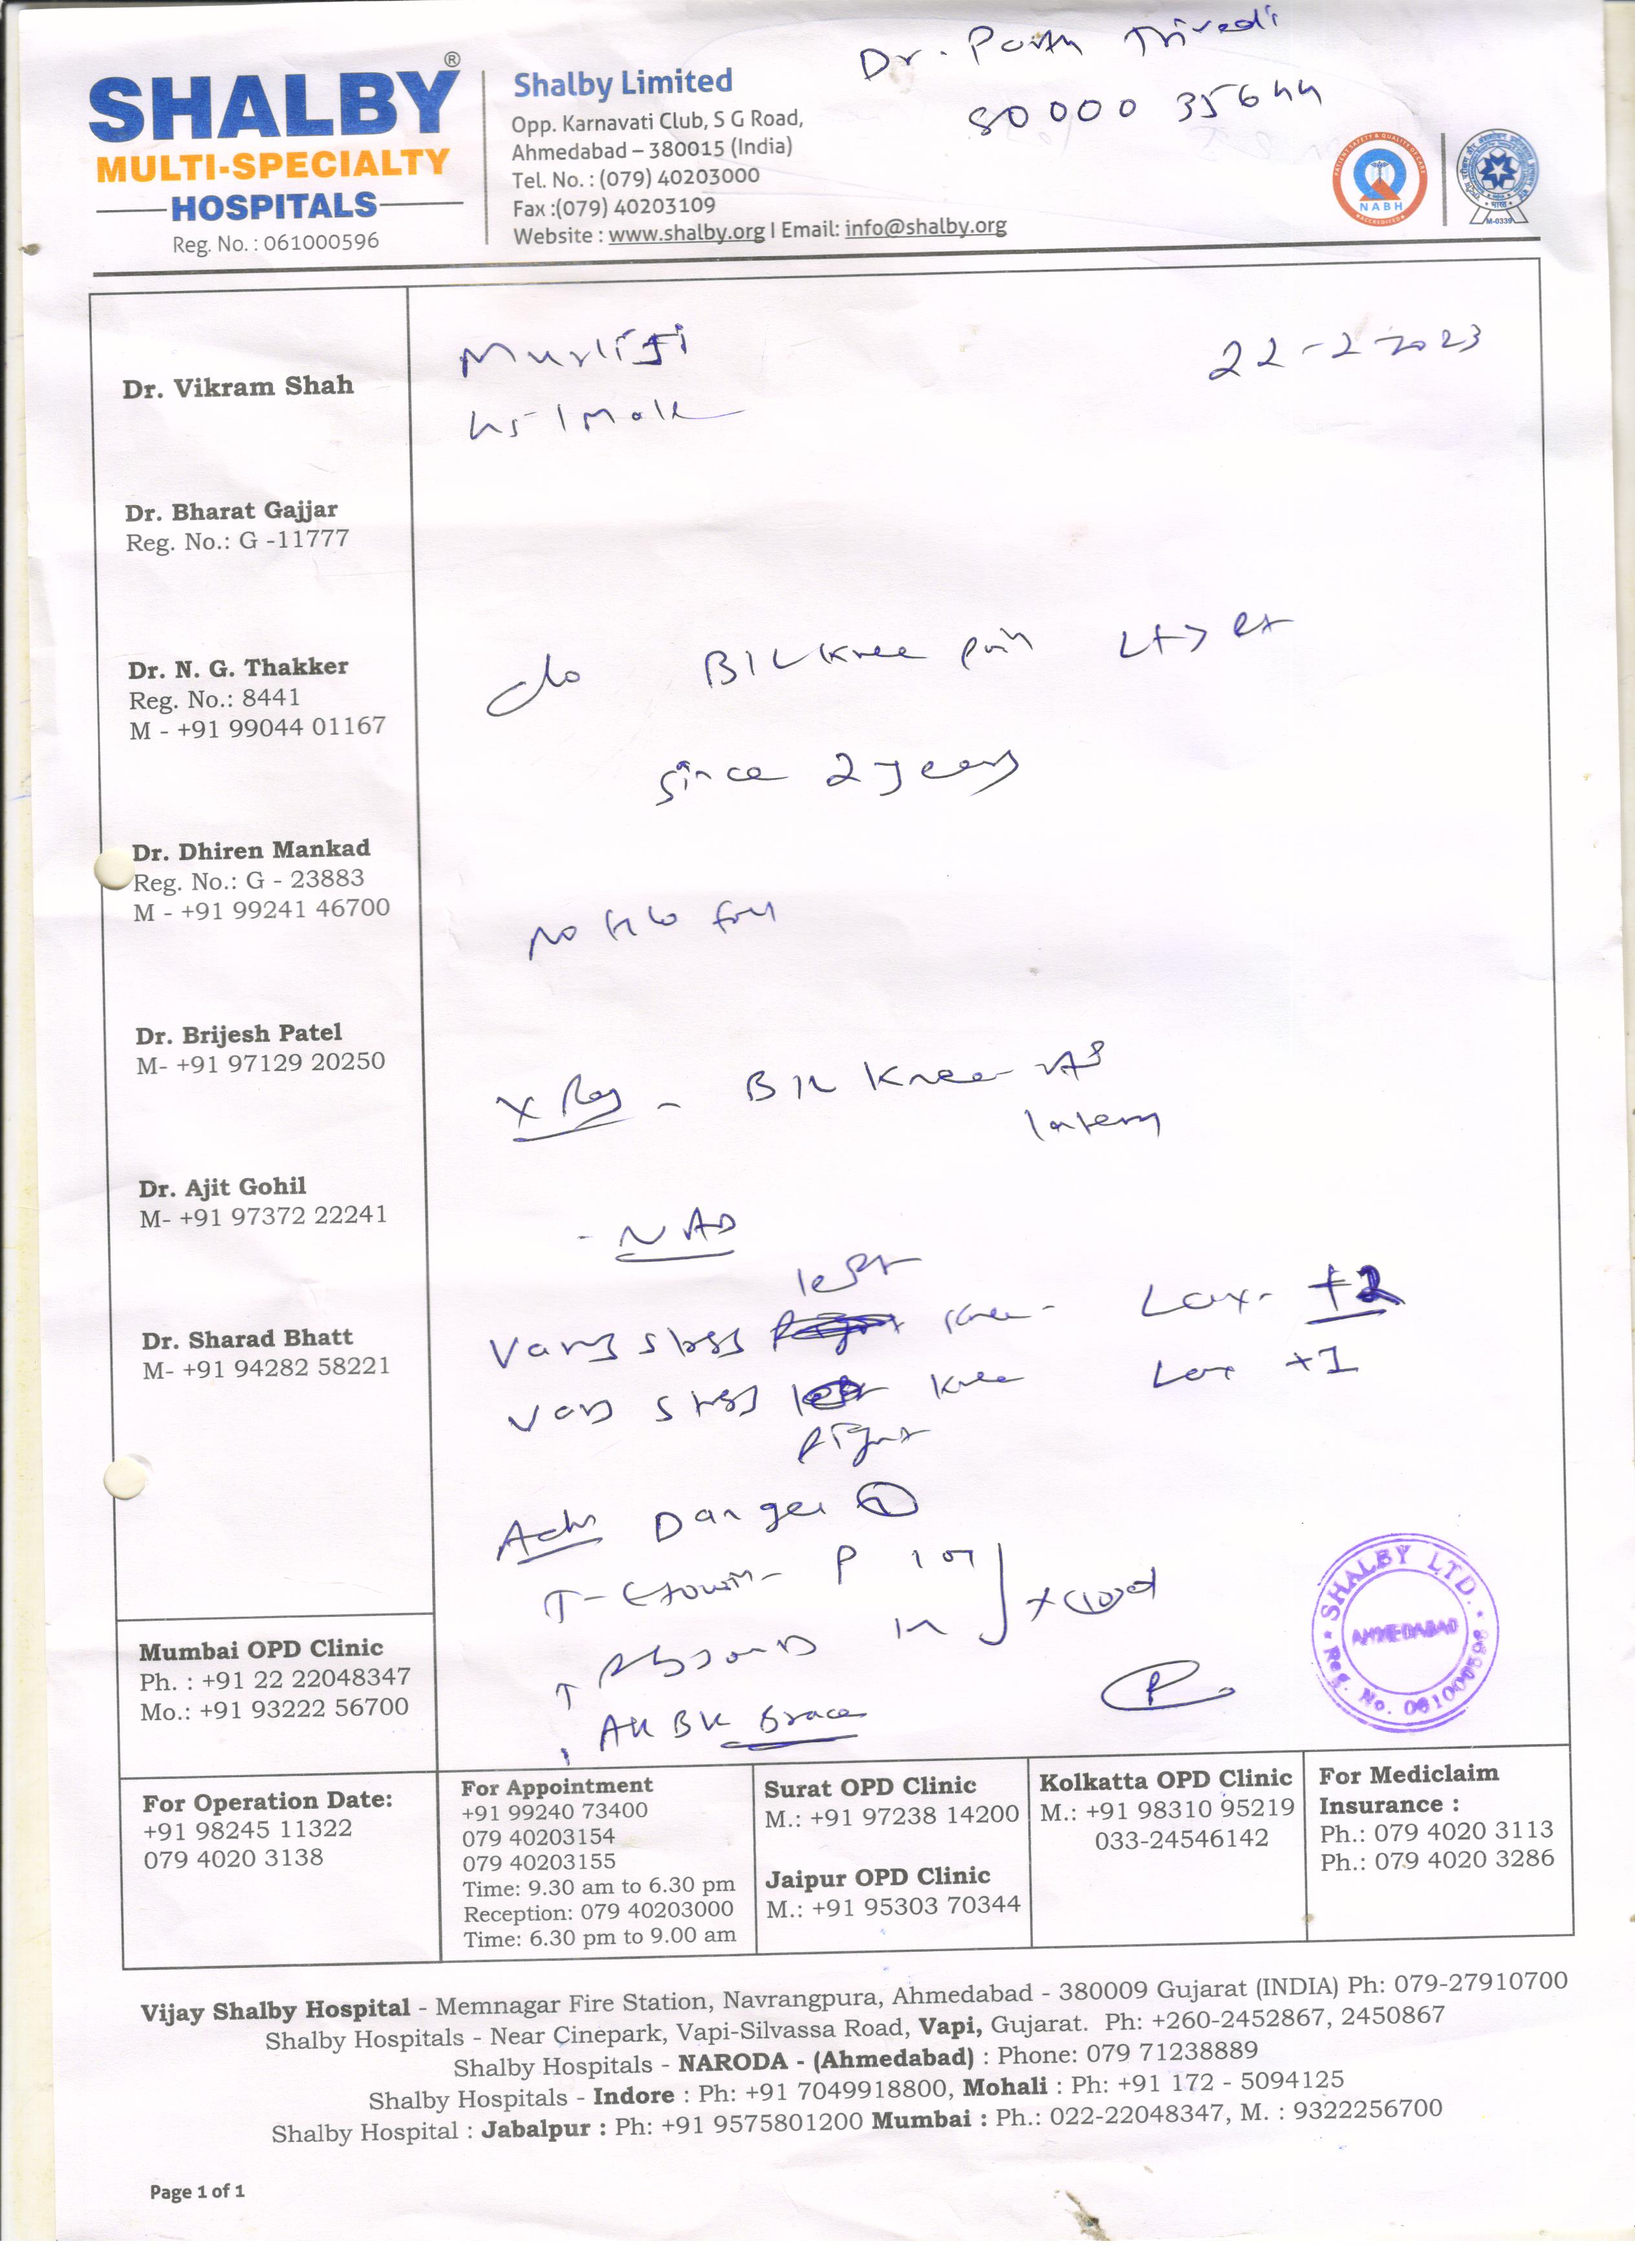 Dr. Parth Trivedi
80000 35644
SHALBY®
MULTI-SPECIALTY
HOSPITALS
Reg. No. : 061000596
Shalby Limited
Opp. Karnavati Club, S G Road,
Ahmedabad – 380015 (India)
Tel. No. : (079) 40203000
Fax :(079) 40203109
Website : www.shalby.org I Email: info@shalby.org
NABH
M-0339
Murliji
22-2-2023
45/Male
Dr. Vikram Shah
Dr. Bharat Gajjar
Reg. No.: G -11777
Dr. N. G. Thakker
Reg. No.: 8441
M - +91 99044 01167
Dr. Dhiren Mankad
Reg. No.: G - 23883
M - +91 99241 46700
Dr. Brijesh Patel
M- +91 97129 20250
Dr. Ajit Gohil
M- +91 97372 22241
Dr. Sharad Bhatt
M- +91 94282 58221
c/o B/L knee pain Lt > Rt
since 2 years
No H/o fall
X Ray - B/L knee - AP
lateral
- NAD
left
Varus stress knee - Lax - +2
Varus stress knee Lax +1
Right
Adv
T-
P
AK BK brace
SHALBY LTD.
AHMEDABAD
Reg. No. 061000596
Mumbai OPD Clinic
Ph. : +91 22 22048347
Mo.: +91 93222 56700
For Operation Date:
+91 98245 11322
079 4020 3138
For Appointment
+91 99240 73400
079 40203154
079 40203155
Time: 9.30 am to 6.30 pm
Reception: 079 40203000
Time: 6.30 pm to 9.00 am
Surat OPD Clinic
M.: +91 97238 14200
Jaipur OPD Clinic
M.: +91 95303 70344
Kolkatta OPD Clinic
M.: +91 98310 95219
033-24546142
For Mediclaim
Insurance :
Ph.: 079 4020 3113
Ph.: 079 4020 3286
Vijay Shalby Hospital - Memnagar Fire Station, Navrangpura, Ahmedabad - 380009 Gujarat (INDIA) Ph: 079-27910700
Shalby Hospitals - Near Cinepark, Vapi-Silvassa Road, Vapi, Gujarat. Ph: +260-2452867, 2450867
Shalby Hospitals - NARODA - (Ahmedabad) : Phone: 079 71238889
Shalby Hospitals - Indore : Ph: +91 7049918800, Mohali : Ph: +91 172 - 5094125
Shalby Hospital : Jabalpur : Ph: +91 9575801200 Mumbai : Ph.: 022-22048347, M. : 9322256700
Page 1 of 1